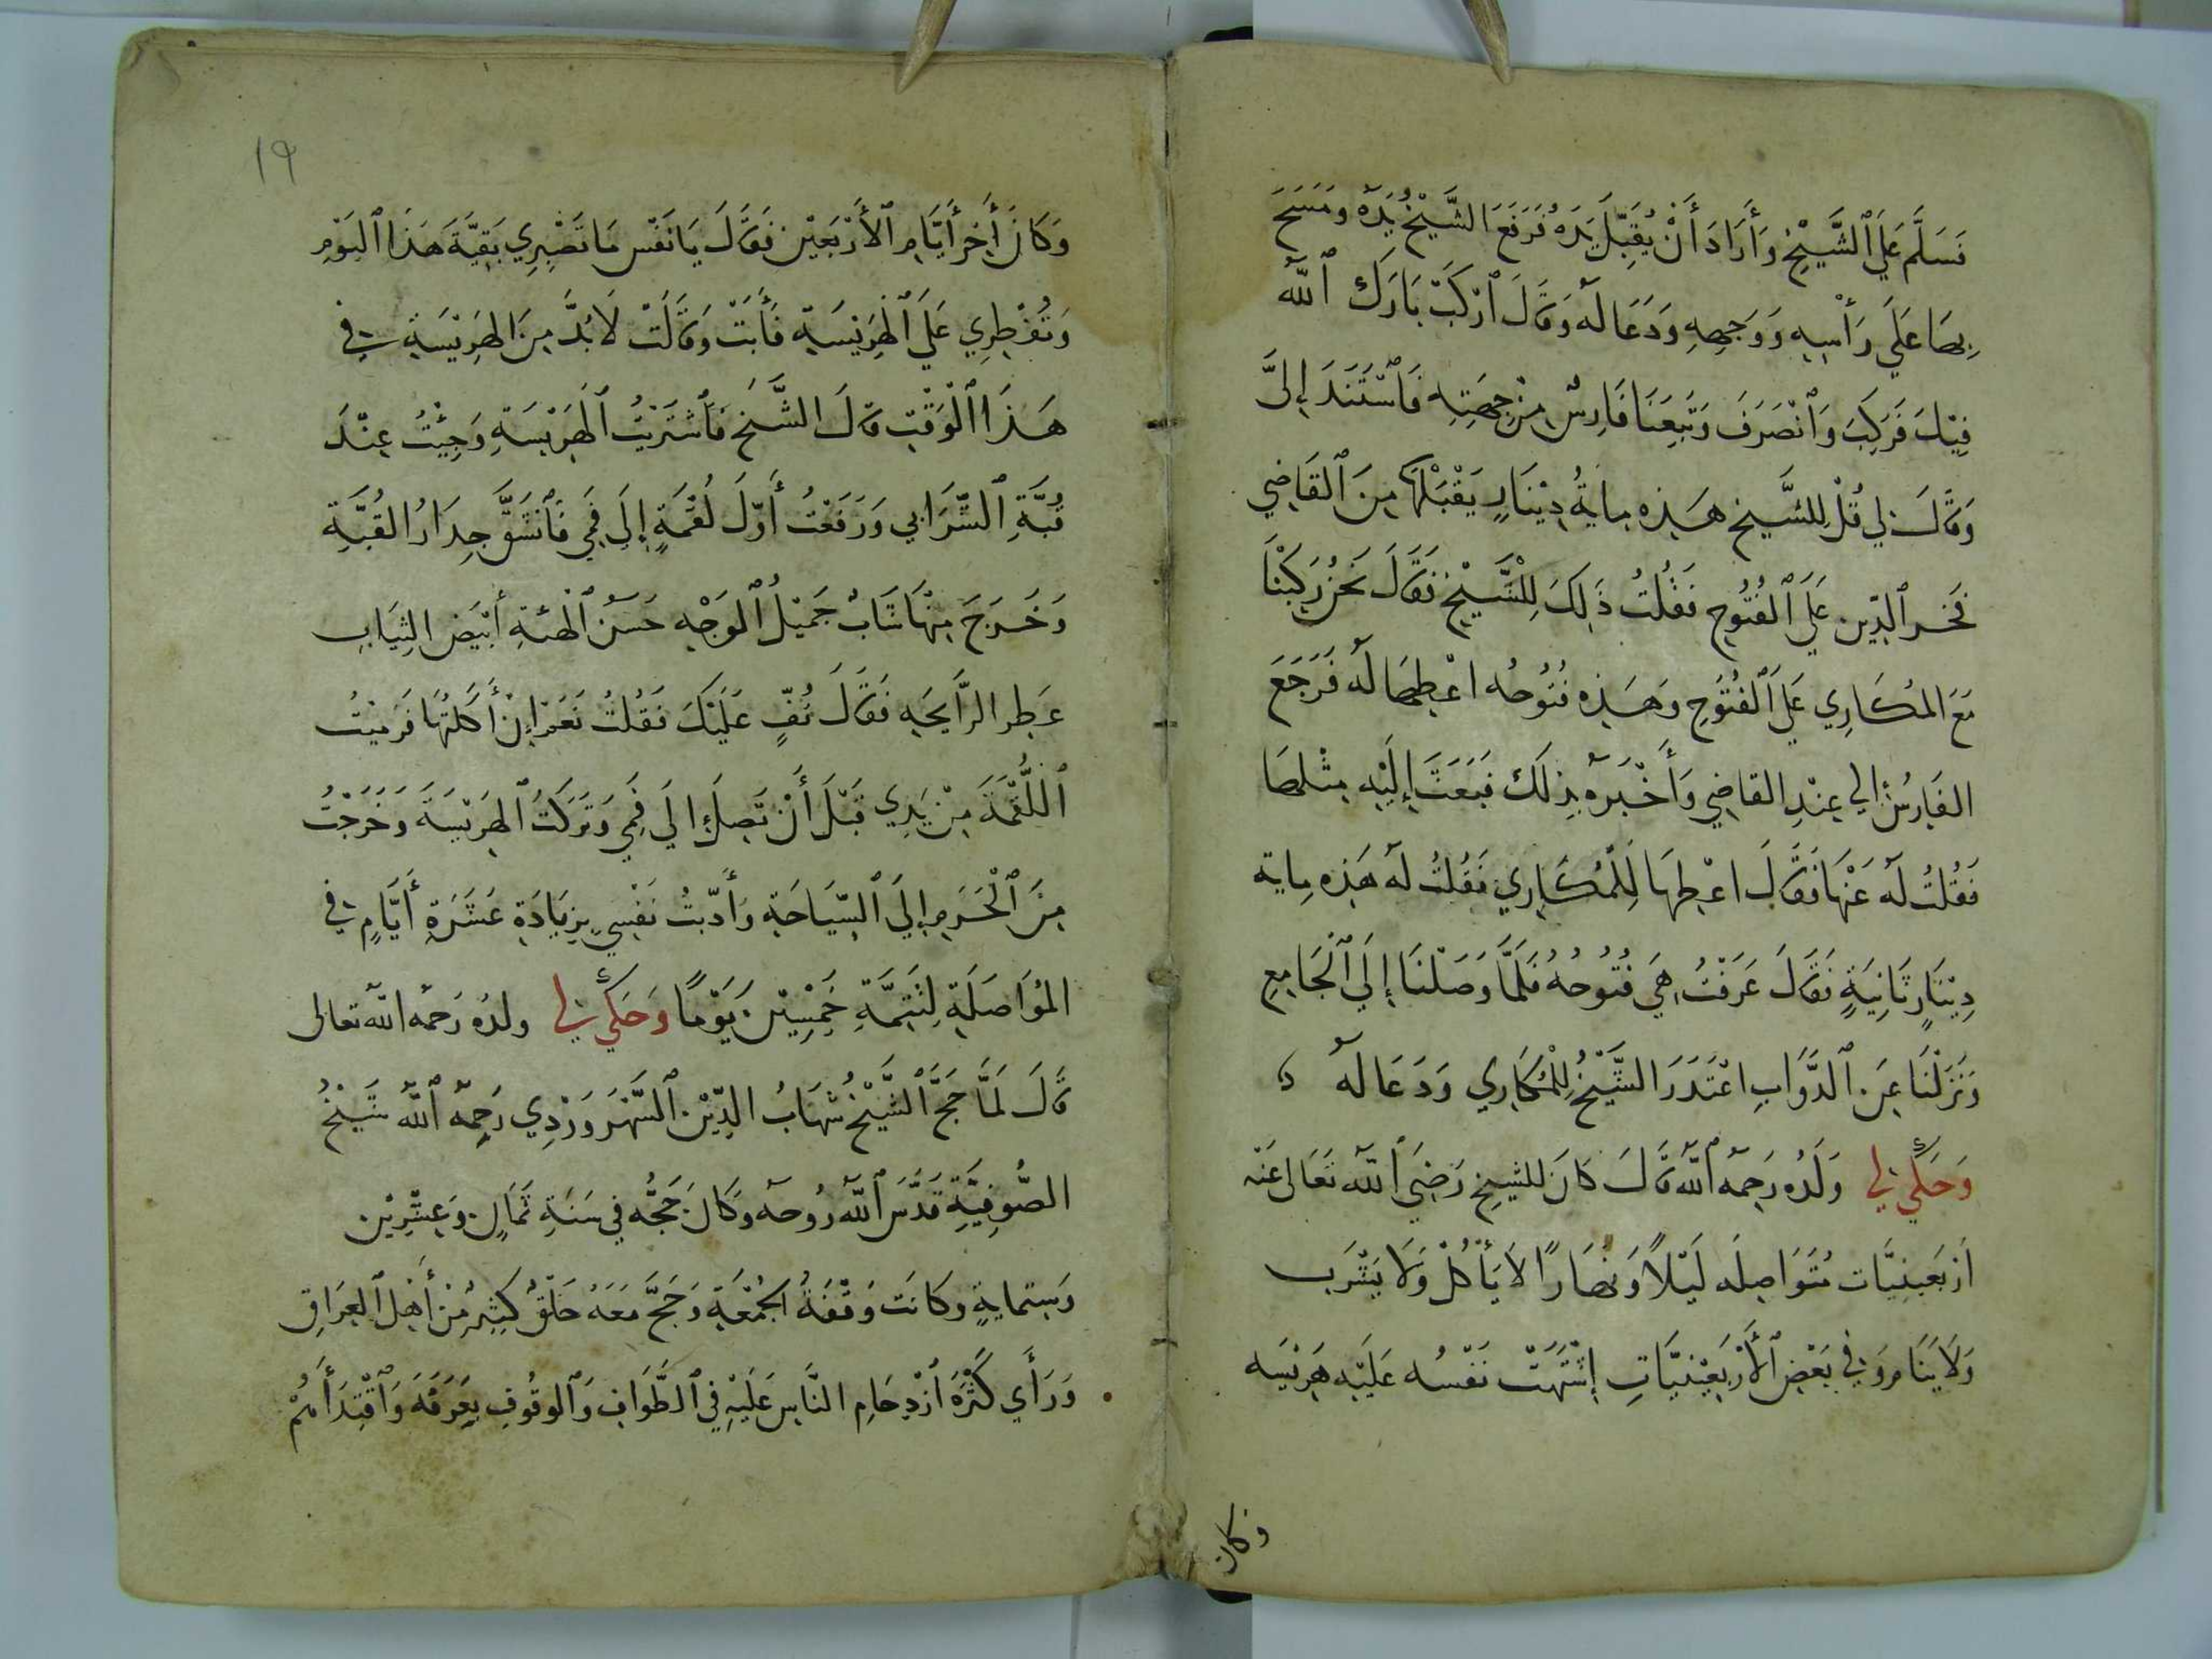 فَسَلَّمَ عَلَى ٱلشَّيْخِ وَأَرَادَ أَنْ يُقَبِّلَ يَدَهُ فَرَفَعَ الشَّيْخُ يَدَهُ وَمَسَحَ
بِهَا عَلَى رَأْسِهِ وَوَجهِهِ وَدَعَا لَهُ وَقَالَ ٱرْكَبْ بَارَكَ ٱللّٰه
فِيْكَ فَرَكِبَ وَٱنْصَرَفَ وَتَبِعَنَا فَارِسٌ مِنْ جِهَتِهِ فَاسْتَنَدَ إِلَىَّ
وَقَالَ لِي قُلْ لِلشَّيخِ هَذِه مِايَةُ دِيْنَارٍ يَقْبَلْهَا مِنَ ٱلْقَاضِي
فَخرِ ٱلدِّينِ عَلَى ٱلْفُتُوحِ فَقُلْتُ ذَلِكَ لِلْشَّيْخِ فَقَالَ نَحْنُ رَكِبْنَا
مَعَ المُكَارِي عَلَى ٱلْفُتُوحِ وَهَذِه فُتُوحُه اعْطِهَا لَهُ فَرَجَعَ
الفَارِسُ إلى عِنْدِ القَاضِي وَأَخْبَرَهُ بِذَلكَ فَبَعَثَ إِلَيْهِ مِثْلهَا
فَقُلتُ لَهُ عَنْهَا فَقَالَ اعْطِهَا لِلْمُكَارِي فَقُلتُ لَهُ هَذِه مِاية
دِيْنَارٍ ثَانِيَةٍ فَقَالَ عَرَفْتُ هِيَ فُتُوحُهُ فَلَمَّا وَصَلْنَا إِلَى ٱلْجَامِعِ
وَنَزَلْنَا عَنِ ٱلدَّوَابِ اعْتَذَرَ الشَّيْخُ لِلْمُكَارِي وَدَعَا لَهُ
وَحَكَى لِي وَلَدُه رَحِمَهُ ٱللّٰه قَالَ كَانَ للشيخِ رَضِيَ ٱللّٰه تَعَالى عَنْه
أَرْبَعِينِيَّات مُتَوَاصِلَه لَيْلًا وَنَهَارًا لَا يَأْكُلْ وَلَا يَشْرَب
وَلَا يَنَام وَفِي بَعْضِ ٱلْأَرْبَعِيْنِيَّاتِ إِشْتَهَتْ نَفْسُه عَلَيْه هَرِيْسَه
وكان
١٩
وَكَانَ أَخِرَ أَيَّامِ ٱلْأَرْبَعِيْنَ فَقَالَ يَا نَفْس مَا تَصْبِرِي بَقِيَّةَ هَذَا ٱليَوْمِ
وَتُفْطِرِي عَلَى ٱلْهَرِيْسَةِ فَأَبَتْ وَقَالَتْ لَا بُدَّ مِنَ الهَرِيْسَةِ فِي
هَذَا ٱلْوَقْتِ قَالَ الشَّيخ فَٱشْتَرَيْتُ ٱلْهَرِيْسَةِ وَجِئْتُ عِنْدَ
قُبَّةِ ٱلشَّرَابِي وَرَفَعْتُ أَوَّلَ لُقْمَةٍ إِلَى فَمِي فَٱنْشَقَّ جِدَارُ القُبَّةِ
وَخَرَجَ مِنْهَا شَابٌ جَمِيْلُ ٱلوَجْهِ حَسَنُ ٱلْهَئةِ أَبْيَض الثِيَابِ
عَطِر الرَّايحَةِ فَقَالَ تُفٍّ عَلَيْكَ فَقُلتُ نَعَمْ إِنْ أَكَلتُهَا فَرَمَيْتُ
ٱللُّقْمَةَ مِنْ يَدِي قَبْلَ أَنْ تَصِلَ إِلَى فَمِي وَتَرَكْتُ ٱلْهَرِيْسَةَ وَخَرَجْتُ
مِنَ ٱلْحَرَمِ إِلَى ٱلسِّيَاحَةِ وَأَدَّبتُ نَفْسِي بِزِيَادَةِ عَشَرَةِ أَيَّامٍ فِي
المُوَاصَلَةِ لِتَتِمَّةِ خَمْسِيْنَ يَوْمًا وَحَكَى لِي ولدُه رَحمَه الله تعالى
قَالَ لَمَّا حَجَّ ٱلشَّيْخُ شِهَابُ الدِّيْنِ ٱلسَّهْرَوَرْدِي رَحِمَهُ ٱللّٰه شَيْخُ
الصُّوفِيَّةِ قَدَّسَ ٱللّٰه رُوحَه وَكَانَ حَجُّه فِي سَنَةِ ثَمَانٍ وَعِشْرِيْنَ
وَسِتمايةٍ وَكَانَت وَقْفَةُ ٱلْجُمْعَةِ وَحَجَّ مَعَهُ خَلْقٌ كَثِيْرٌ مِنْ أَهْلِ ٱلْعِرَاقِ
وَرَأَى كَثْرَةَ ٱزْدِحَامِ النَّاسِ عَلَيْهِ فِي ٱلطَّوَافِ وَٱلْوقُوفِ بِعَرَفَةَ وَٱقْتِدَأُهُمْ